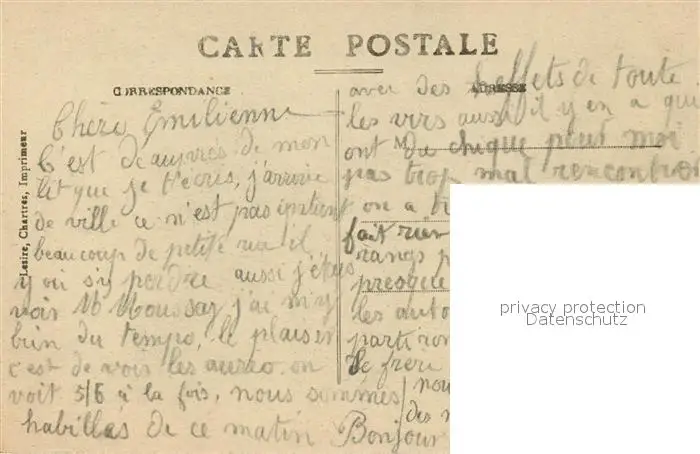 CARTE POSTALE
CORRESPONDANCE
ADRESSE
Lesire, Chartres, Imprimeur
Chère Émilienne
C'est de auprès de mon
lit que je t'écris, j'arrive
de ville ce n'est pas
beaucoup de petite il
y où s'y perdre aussi j'étais
voir M Moussay j'ai
bien du tempo, le plaisir
c'est de voir les aureo on
voit 5/6 à la fois, nous sommes
habillés de ce matin
avec des effets de toute
les vers aussi il y en a qui
ont du chique pour moi
pas trop mal rencontrer
on a
fait rien
rangs
presque
les auto
partiron
Le frère
nou
des
Bonjour
M
privacy protection
Datenschutz